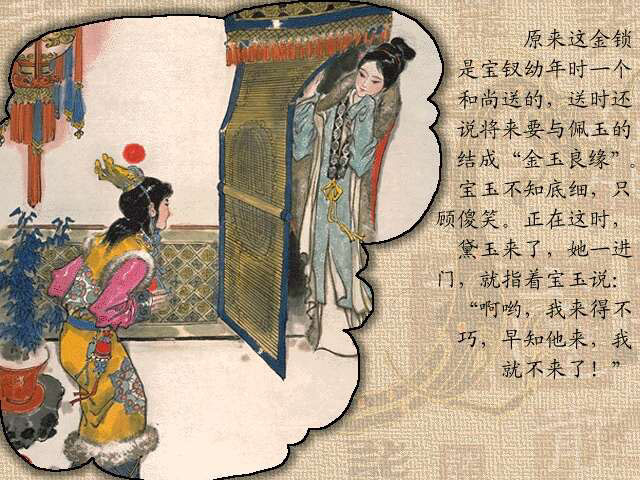 原来这金锁
是宝钗幼年时一个
和尚送的，送时还
说将来要与佩玉的
结成“金玉良缘”
宝玉不知底细，只
顾傻笑。正在这时，
黛玉来了，她一进
门，就指着宝玉说：
“啊哟，我来得不
巧，早知他来，我
就不来了！”